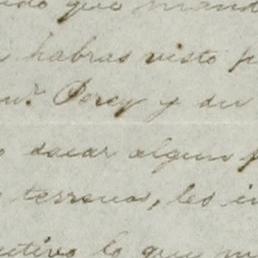 que mand
habras visto p
Percy y su
sacar algun p
terreno, les i
lo que m